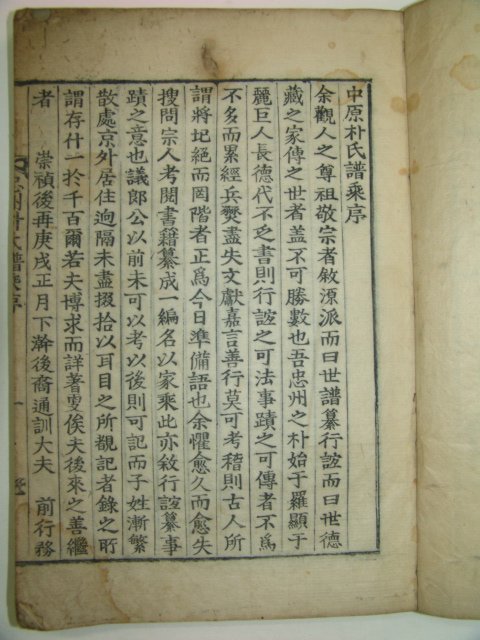 中原朴氏譜乘序
余觀人之尊祖敬宗者敘源派而曰世譜纂行誼而曰世德
藏之家傳之世者盖不可勝數也吾忠州之朴始于羅顯于
麗巨人長德代不乏書則行誼之可法事蹟之可傳者不爲
不多而累經兵燹盡失文獻嘉言善行莫可考稽則古人所
謂將圮絕而罔階者正爲今日準備語也余懼愈久而愈失
搜問宗人考閱書籍纂成一編名以家乘此亦敘行誼纂事
蹟之意也議郎公以前未可以考以後則可記而子姓漸繁
散處京外居住逈隔未盡掇拾以耳目之所覩記者錄之所
謂存什一於千百爾若夫博求而詳著叟俟夫後來之善繼
者 崇禎後再庚戌正月下澣後裔通訓大夫 前行務